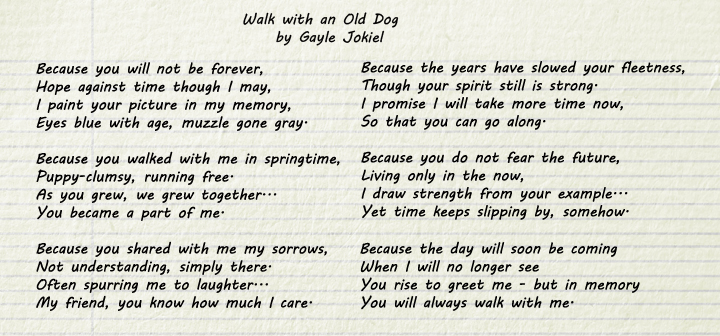 Walk with an Old Dog
by Gayle Jokiel
Because you will not be forever,
Hope against time though I may,
I paint your picture in my memory,
Eyes blue with age, muzzle gone gray.
Because you walked with me in springtime,
Puppy-clumsy, running free.
As you grew, we grew together...
You became a part of me.
Because you shared with me my sorrows,
Not understanding, simply there.
Often spurring me to laughter...
My friend, you know how much I care.
Because the years have slowed your fleetness,
Though your spirit still is strong.
I promise I will take more time now,
So that you can go along.
Because you do not fear the future,
Living only in the now,
I draw strength from your example...
Yet time keeps slipping by, somehow.
Because the day will soon be coming
When I will no longer see
You rise to greet me - but in memory
You will always walk with me.